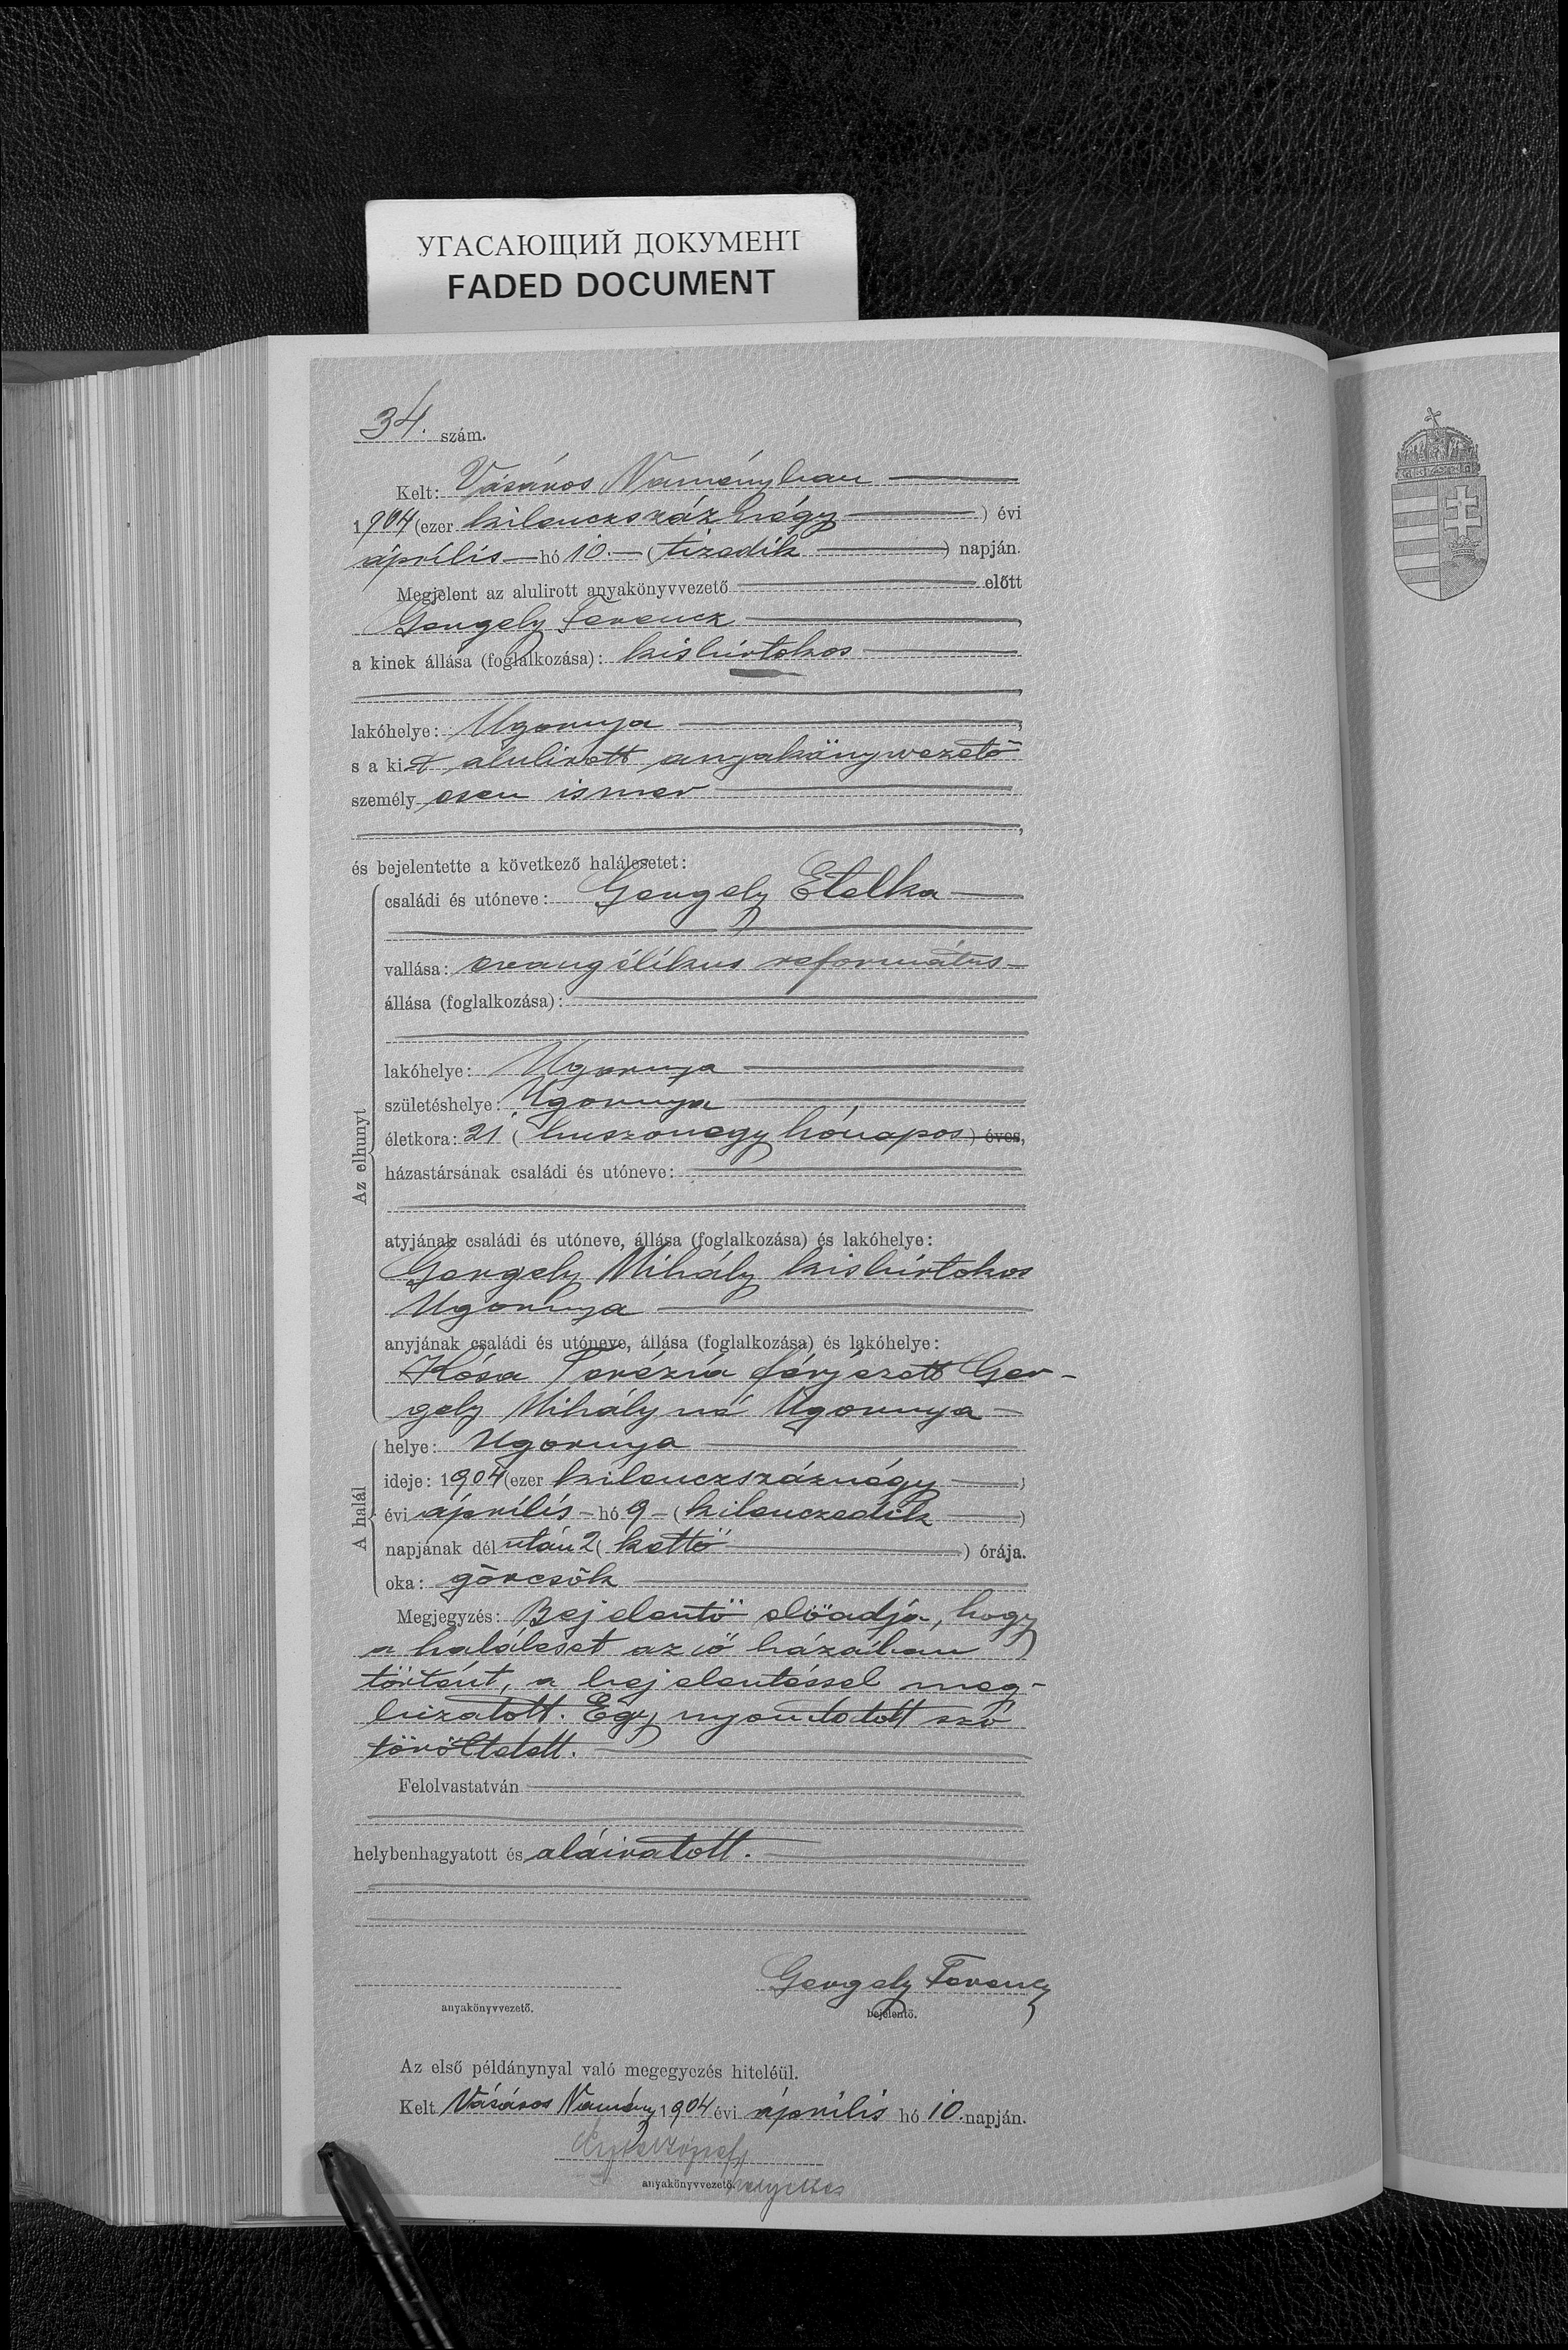 УГАСАЮЩИЙ ДОКУМЕНТ
FADED DOCUMENT
34. szám.
Kelt: Vásáros Naményban
1904 (ezer kilenczszáz négy) évi
április hó 10. (tizedik) napján.
Megjelent az alulirott anyakönyvvezető előtt
Gergely Ferencz,
a kinek állása (foglalkozása): kisbirtokos
,
lakóhelye: Ugornya,
s a kit alulirott anyakönyvvezető
személyesen ismer
,
és bejelentette a következő halálesetet:
Az elhunyt
családi és utóneve: Gergely Etelka
vallása: evangélikus református
állása (foglalkozása):
lakóhelye: Ugornya
születéshelye: Ugornya
életkora: 21 (huszonegy hónapos) éves,
házastársának családi és utóneve:
atyjának családi és utóneve, állása (foglalkozása) és lakóhelye:
Gergely Mihály kisbirtokos
Ugornya
anyjának családi és utóneve, állása (foglalkozása) és lakóhelye:
Kósa Terézia férjezett Ger-
gely Mihályné Ugornya
A halál
helye: Ugornya
ideje: 1904 (ezer kilenczszáznégy)
évi április hó 9 (kilenczedik)
napjának délután 2 (kettő) órája.
oka: görcsök
Megjegyzés: Bejelentő előadja, hogy
a haláleset az ő házában
történt, a bejelentéssel meg-
bizatott. Egy nyomtatott szó
töröltetett.
Felolvastatván
helybenhagyatott és aláiratott.
Gergely Ferencz
anyakönyvvezető.
bejelentő.
Az első példánynyal való megegyezés hiteléül.
Kelt Vásáros Namény 1904 évi április hó 10. napján.
József
anyakönyvvezető helyettes